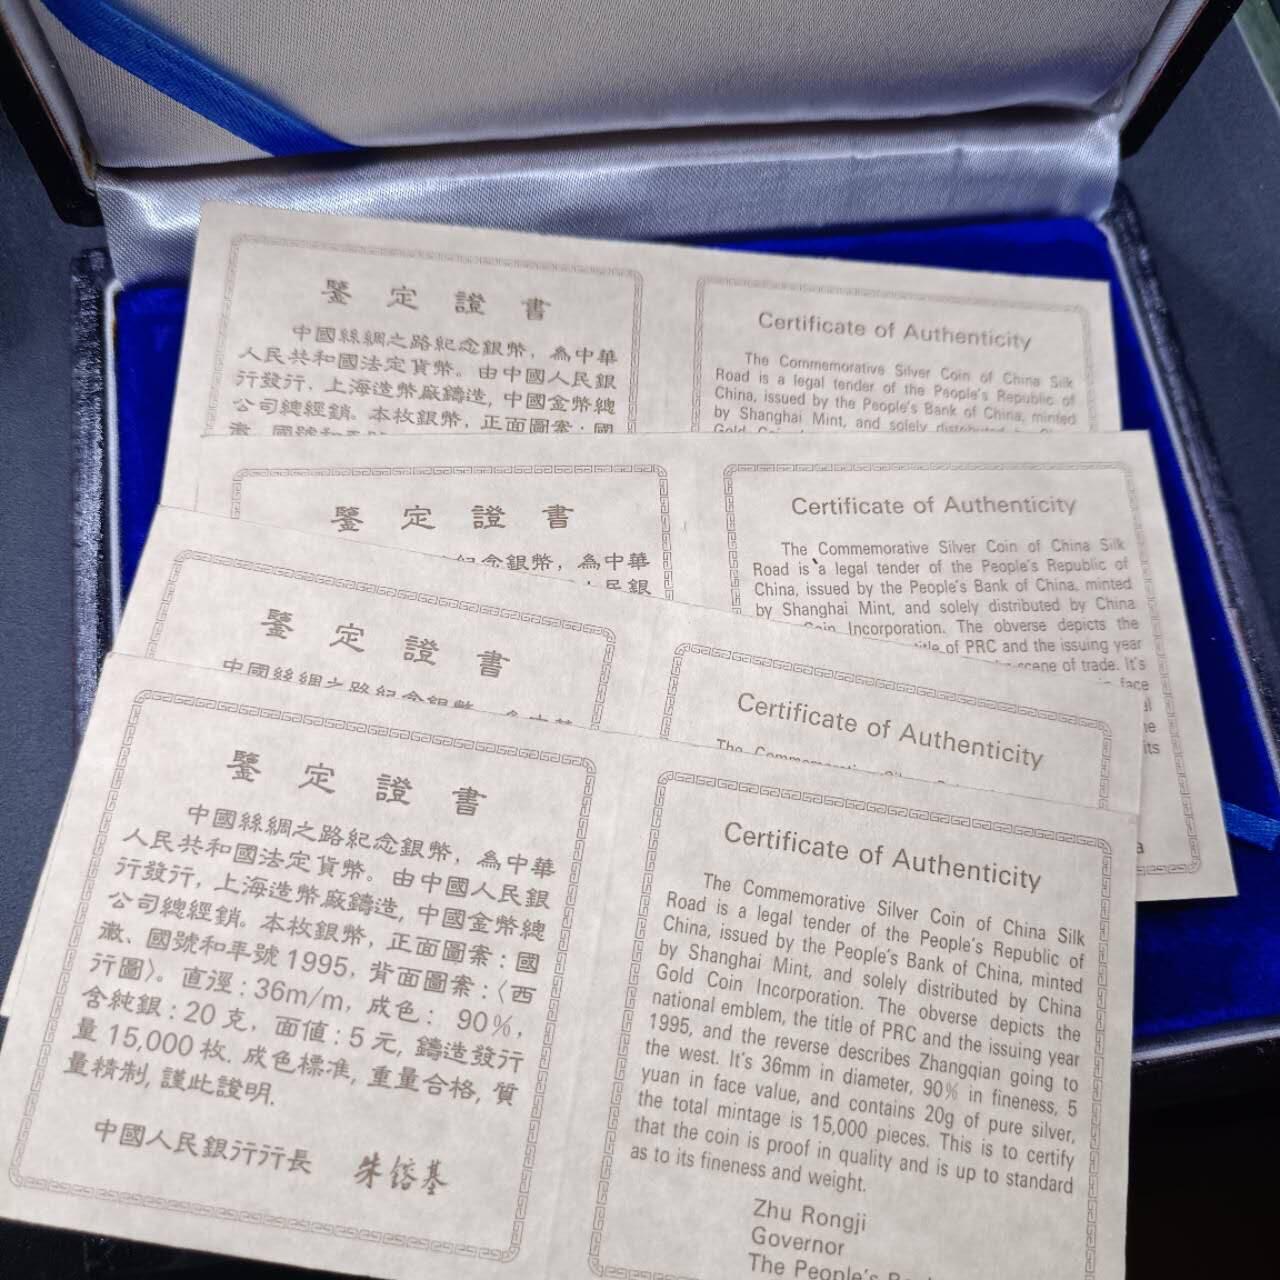 鑒定證書
中國絲綢之路紀念銀幣，為中華
人民共和國法定貨幣。由中國人民銀
行發行，上海造幣廠鑄造，中國金幣總
公司總經銷。本枚銀幣，正面圖案：國
徽、國號和年號
Certificate of Authenticity
The Commemorative Silver Coin of China Silk
Road is a legal tender of the People's Republic of
China, issued by the People's Bank of China, minted
by Shanghai Mint, and solely distributed by China
Gold Coin
鑒定證書
紀念銀幣，為中華
人民銀
Certificate of Authenticity
The Commemorative Silver Coin of China Silk
Road is a legal tender of the People's Republic of
China, issued by the People's Bank of China, minted
by Shanghai Mint, and solely distributed by China
Coin Incorporation. The obverse depicts the
title of PRC and the issuing year
scene of trade. It's
in face
its
鑒定證書
中國絲綢之路紀念銀幣，為中華
Certificate of Authenticity
The Commemorative Silver
鑒定證書
中國絲綢之路紀念銀幣，為中華
人民共和國法定貨幣。由中國人民銀
行發行，上海造幣廠鑄造，中國金幣總
公司總經銷。本枚銀幣，正面圖案：國
徽、國號和年號1995，背面圖案：〈西
行圖〉。直徑：36m/m，成色：90%，
含純銀：20克，面值：5元，鑄造發行
量15,000枚．成色標准，重量合格，質
量精制，謹此證明．
中國人民銀行行長 朱镕基
Certificate of Authenticity
The Commemorative Silver Coin of China Silk
Road is a legal tender of the People's Republic of
China, issued by the People's Bank of China, minted
by Shanghai Mint, and solely distributed by China
Gold Coin Incorporation. The obverse depicts the
national emblem, the title of PRC and the issuing year
1995, and the reverse describes Zhangqian going to
the west. It's 36mm in diameter, 90% in fineness, 5
yuan in face value, and contains 20g of pure silver,
the total mintage is 15,000 pieces. This is to certify
that the coin is proof in quality and is up to standard
as to its fineness and weight.
Zhu Rongji
Governor
The People's